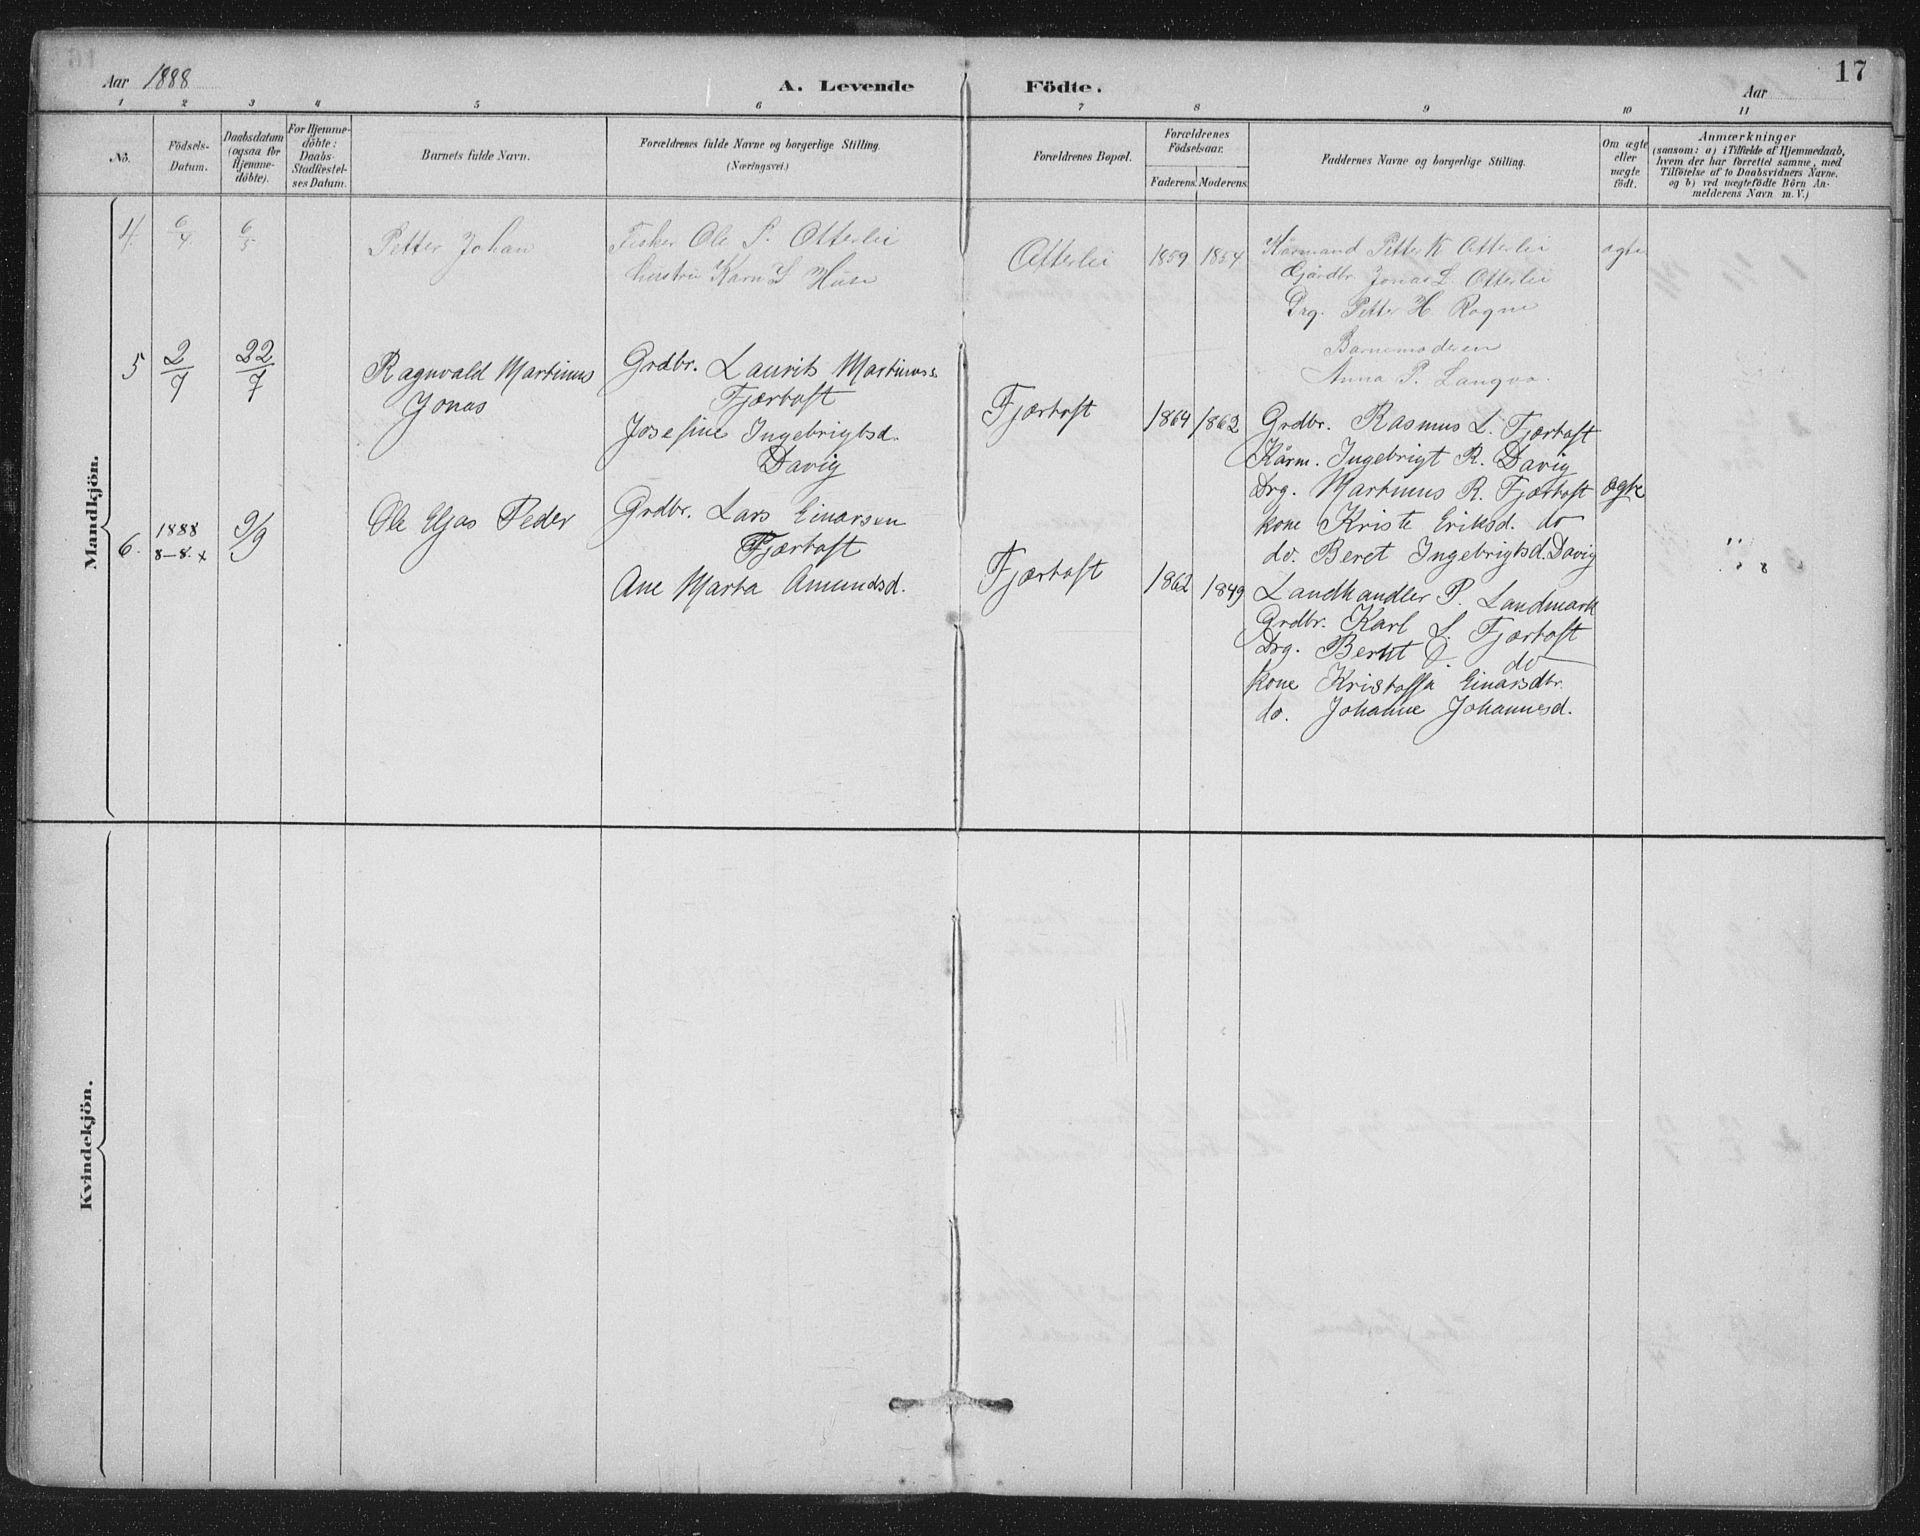 17
Aar 1888
A. Levende Födte.
Aar
1 2 3 4 5 6 7 8 9 10 11
No.
Födsels-
Datum.
Daabsdatum
(ogsaa for
Hjemme-
döbte).
For Hjemme-
döbte:
Daabs-
Stadfæstel-
ses Datum.
Barnets fulde Navn.
Forældrenes fulde Navne og borgerlige Stilling.
(Næringsvei.)
Forældrenes Bopæl.
Forældrenes
Födselsaar.
Faderens. Moderens.
Faddernes Navne og borgerlige Stilling.
Om ægte
eller
uægte
födt.
Anmærkninger
(saasom: a) i Tilfælde af Hjemmedaab,
hvem der har forrettet samme, med
Tilföielse af to Daabsvidners Navne.
og b) ved uægtefödte Börn An-
melderens Navn m. V.)
Mandkjön.
4. 6/4 6/5 Petter Johan
Fisker Ole P. Otterlei
hustru Karn L Huse
Otterlei 1859 1854
Kårmand Petter K Otterlei
Gårdbr. Jonas L Otterlei
Drg. Petter H Rogne
Barnemoderen
Anna P. Langva.
ægte
5 2/7 22/7 Ragnvald Martinus
Jonas
Grdbr. Laurits Martinuss
Fjærtoft
Josefine Ingebrigtsd.
Davig
Fjærtoft 1864 1862
Grdbr. Rasmus L. Fjærtoft
Kårm. Ingebrigt R. Davig
Drg. Martinus R. Fjærtoft
kone Kriste Eriksd. do
do. Beret Ingebrigtsd. Davig
ægte
6. 1888
8-8. 9/9 Ole Eljas Peder
Grdbr. Lars Einarsen
Fjærtoft
Ane Marta Amundsd.
Fjærtoft 1862 1849
Landhandler P. Landmark
Grdbr. Karl L. Fjærtoft
Drg. Bernt J. do
kone Kristoffa Einarsdtr.
do. Johanne Johannesd.
"
Kvindekjön.